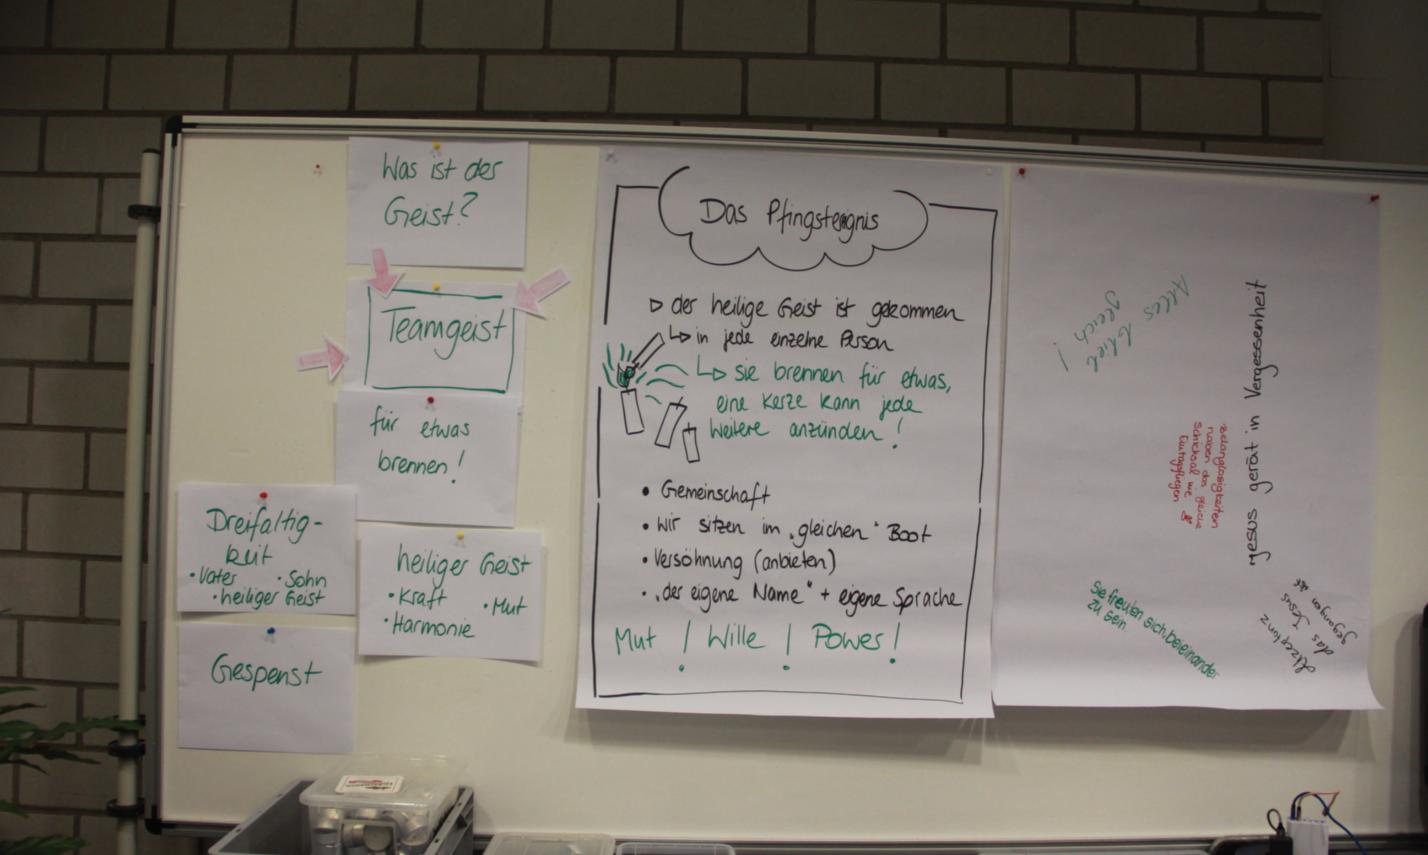 Was ist der
Geist?
Teamgeist
für etwas
brennen!
Dreifaltig-
keit
• Vater • Sohn
• heiliger Geist
heiliger Geist
• Kraft • Mut
• Harmonie
Gespenst
Das Pfingstereignis
▷ der heilige Geist ist gekommen
↳▷ in jede einzelne Person
↳▷ sie brennen für etwas,
eine Kerze kann jede
weitere anzünden!
• Gemeinschaft
• Wir sitzen im „gleichen“ Boot
• Versöhnung (anbieten)
• „der eigene Name“ + eigene Sprache
Mut ! Wille ! Power!
Alles blieb
gleich!
Jesus gerät in Vergessenheit
Belanglosigkeiten
haben das gleiche
Schicksal wie
Eintagsfliegen
Sie freuten sich beieinander
zu sein.
Akzeptanz
das Jesus
gegangen ist